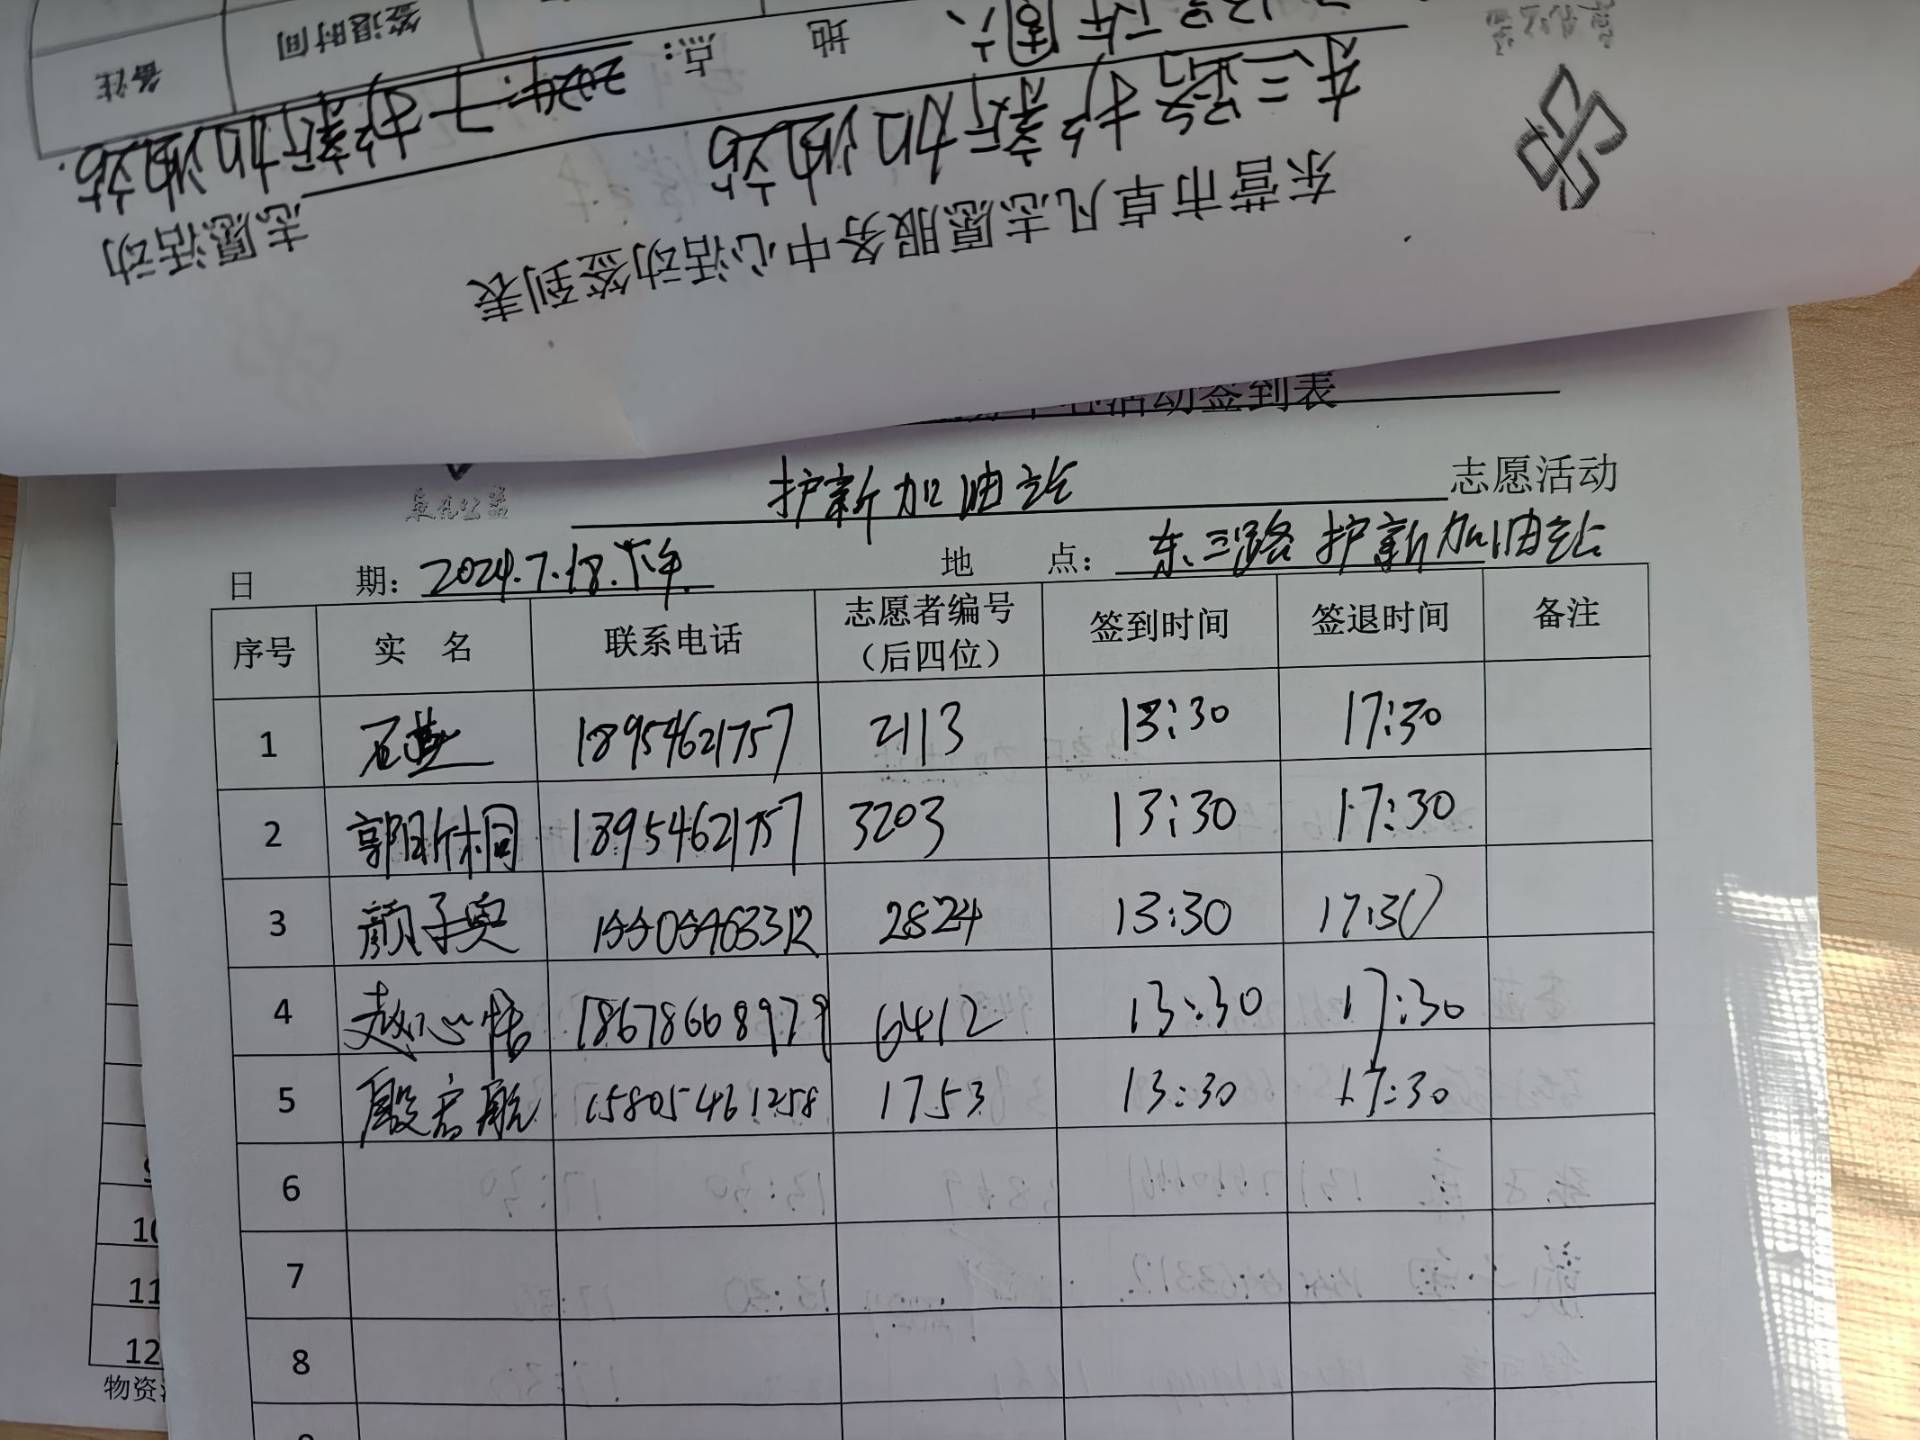 备注 签退时间
地 点:
东三路护新加油站
护新加油站
志愿活动
东营市卓凡志愿服务中心活动签到表
活动签到表
卓凡公益
护新加油站 志愿活动
日 期: 2024.7.18.下午 地 点: 东三路护新加油站
序号 实 名 联系电话 志愿者编号(后四位) 签到时间 签退时间 备注
1 18954621757 2113 13:30 17:30
2 郭昕桐 18954621757 3203 13:30 17:30
3 颜子奥 2824 13:30 17:30
4 赵心恬 18678668979 6412 13:30 17:30
5 殷启航 15805461258 1753 13:30 17:30
6
7
8
10
11
12
物资